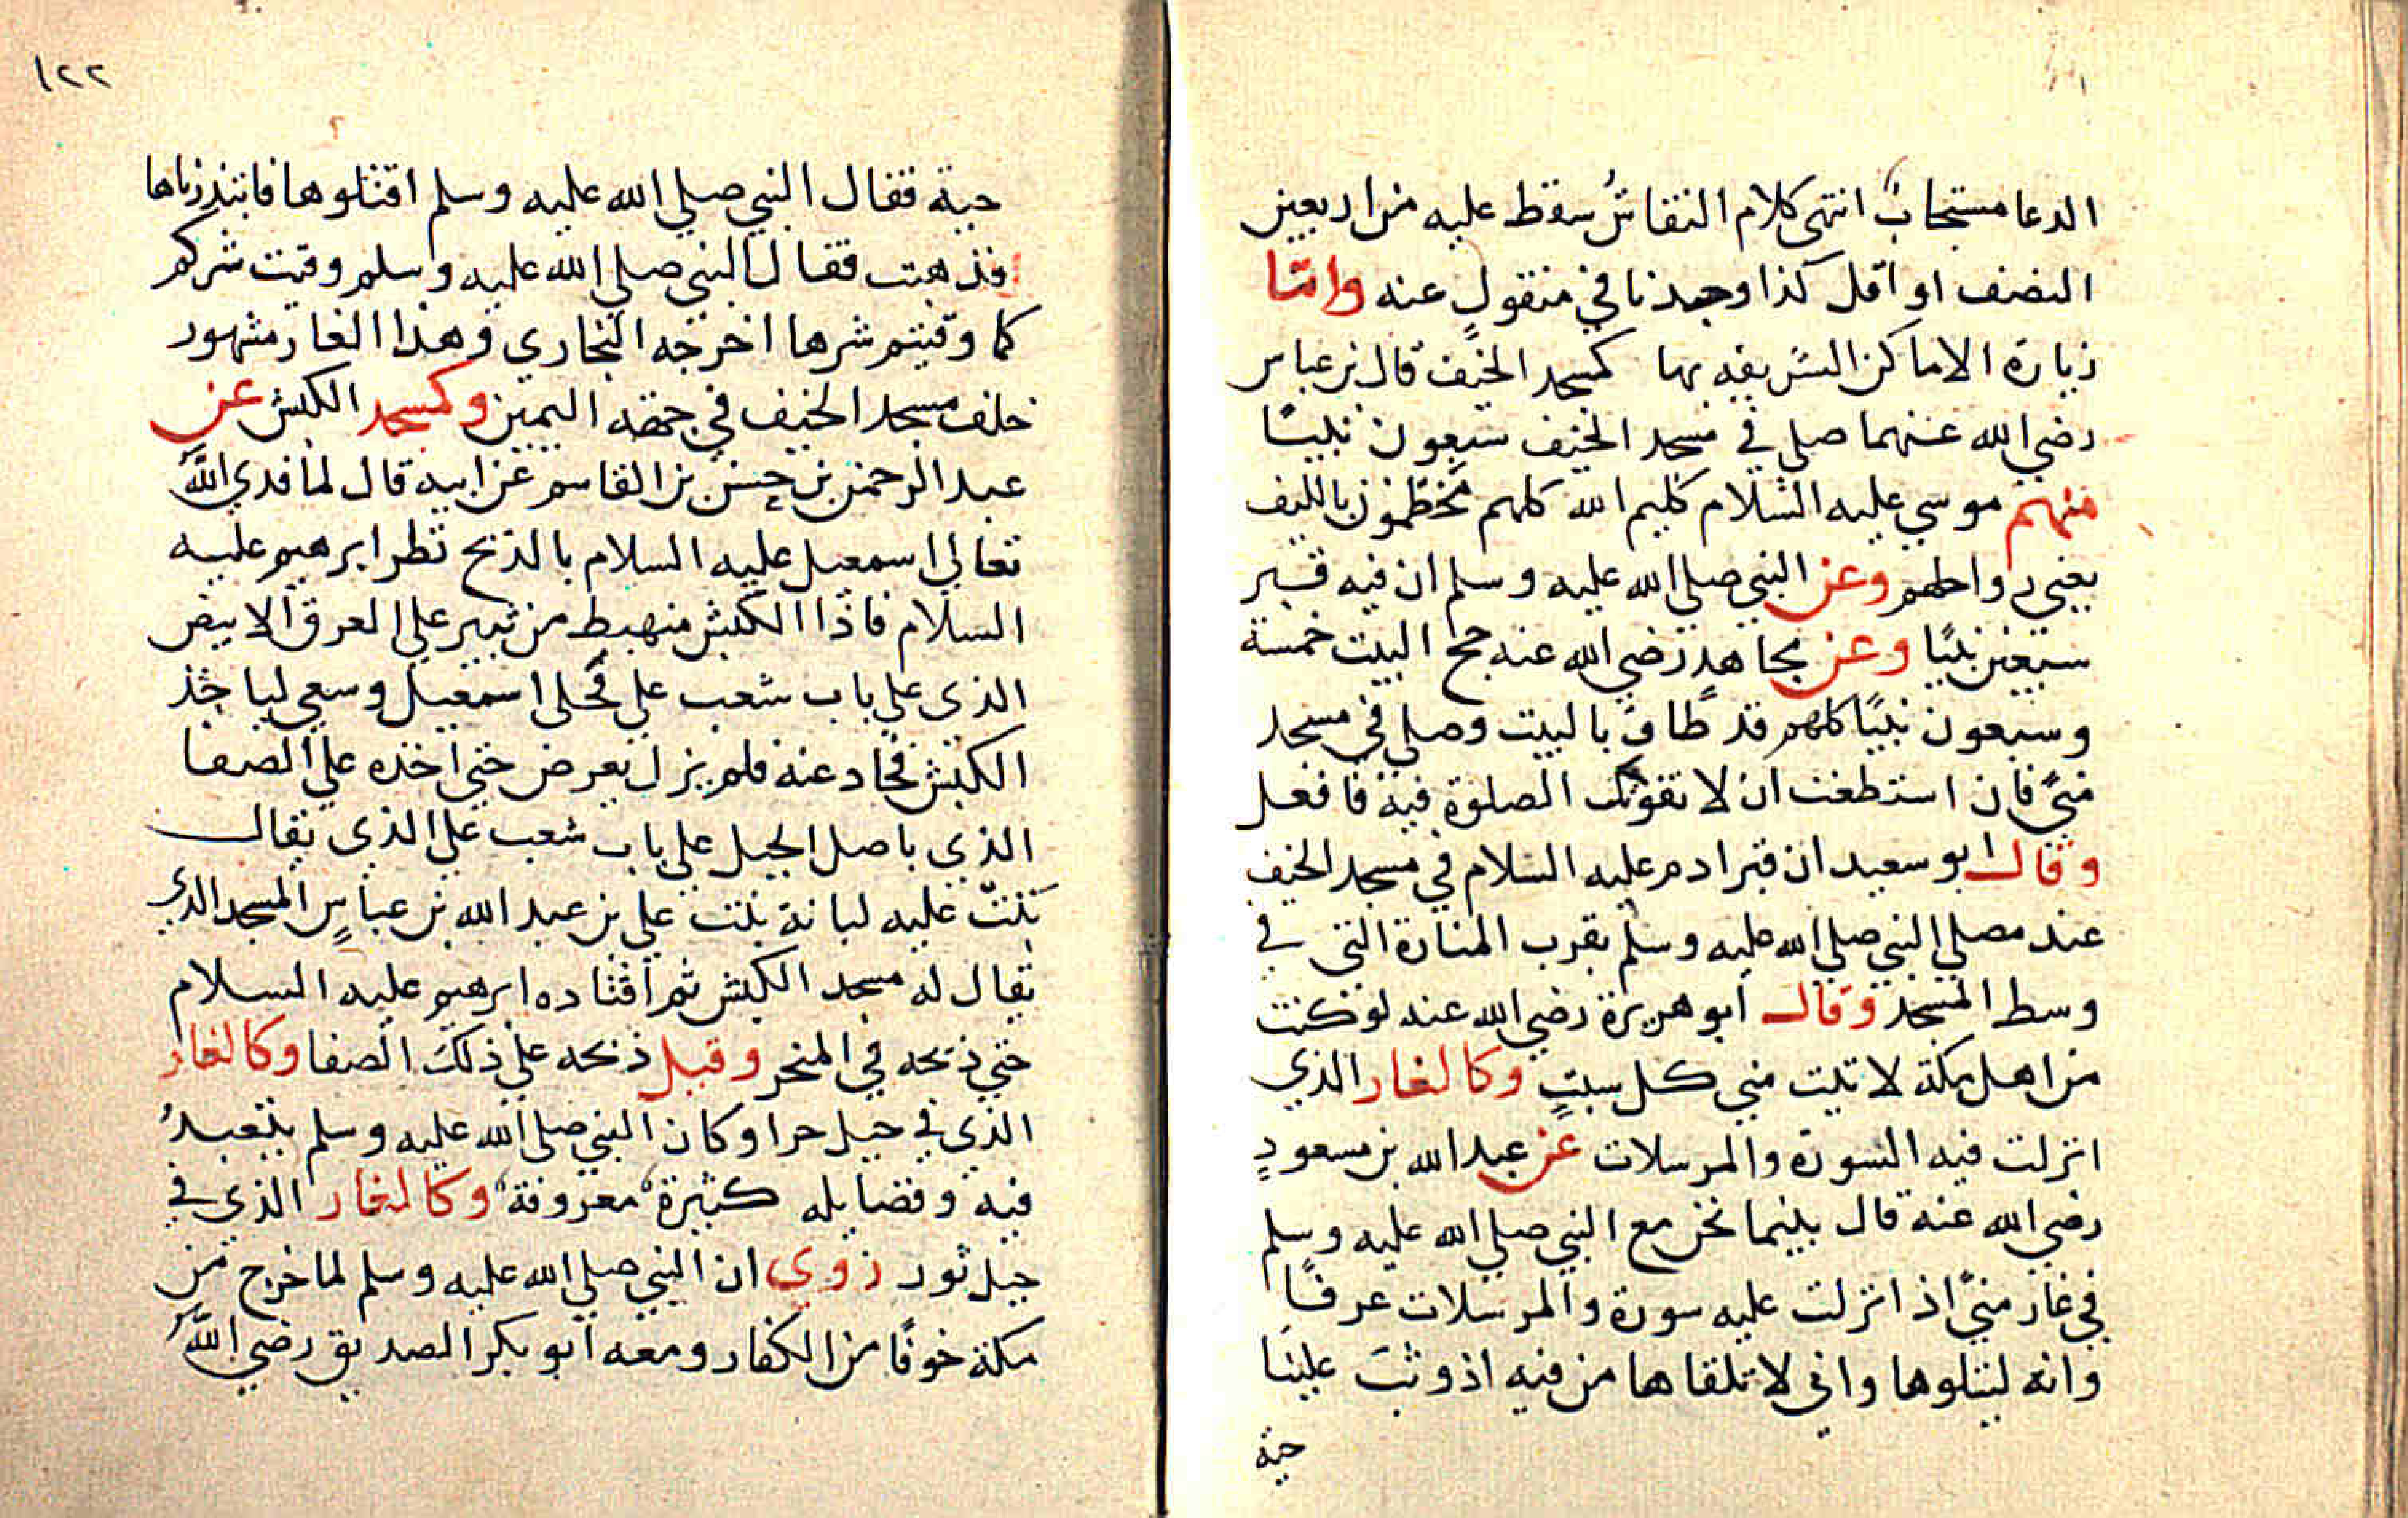 الدعا مستجابٌ انتهى كلام النقاش سقط عليه من اربعين
النصف او اقل كذا وجدنا في منقول عنه واما
زيارة الاماكن الشريفه بها كمسجد الخيف قال بن عباس
رضي الله عنهما صلى في مسجد الخيف سبعون نبيًا
منهم موسي عليه السلام كليم الله كلهم مخطمون بالليف
يعني رواحلهم وعن النبي صلي الله عليه وسلم ان فيه قبر
سبعين نبيًا وعن مجاهد رضي الله عنه حج البيت خمسة
وسبعون نبيًا كلهم قد طاف بالبيت وصلي في مسجد
منيً فان استطعت ان لا تفوتك الصلوة فيه فافعل
وقال ابو سعيد ان قبر ادم عليه السلام في مسجد الخيف
عند مصلي النبي صلي الله عليه وسلم بقرب المنارة التي في
وسط المسجد وقال ابو هريرة رضي الله عنه لو كنت
من اهل مكة لاتيت مني كل سبتٍ وكالغار الذي
انزلت فيه السورة والمرسلات عن عبد الله بن مسعودٍ
رضي الله عنه قال بينما نحن مع النبي صلي الله عليه وسلم
في غار منيً اذ انزلت عليه سورة والمرسلات عرفًا
وانه ليتلوها واني لاتلقاها من فيه اذ وثبت علينا
حية
١٢٢
حية فقال النبي صلي الله عليه وسلم اقتلوها فابتدرناها
فذهبت فقال النبي صلي الله عليه وسلم وقيت شركم
كما وقيتم شرها اخرجه البخاري وهذا الغار مشهور
خلف مسجد الخيف في جهة اليمين وكمسجد الكبش عن
عبد الرحمن بن حسن بن القاسم عن ابيه قال لما فدي الله
تعالي اسمعيل عليه السلام بالذبح نظر ابرهيم عليه
السلام فاذا الكبش منهبط من ثبير علي العرق الابيض
الذي علي باب شعب علي فخلي اسمعيل وسعي لياخذ
الكبش فحاد عنه فلم يزل يعرض حتي اخذه علي الصفا
الذي باصل الجبل علي باب شعب علي الذي يقال
بنت عليه لبانة بنت علي بن عبد الله بن عباسٍ المسجد الذي
يقال له مسجد الكبش ثم اقتاده ابرهيم عليه السلام
حتي ذبحه في المنحر وقيل ذبحه علي ذلك الصفا وكالغار
الذي في جبل حرا وكان النبي صلي الله عليه وسلم يتعبدُ
فيه وفضايله كثيرة معروفة وكالغار الذي في
جبل ثور روي ان النبي صلي الله عليه وسلم لما خرج من
مكة خوفًا من الكفار ومعه ابو بكر الصديق رضي الله